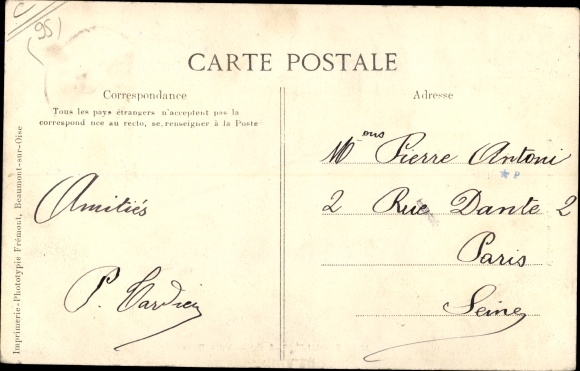 (95)
CARTE POSTALE
Correspondance
Tous les pays étrangers n'acceptent pas la
correspond nce au recto, se renseigner à la Poste
Amitiés
P. Tardieu
Adresse
Mons Pierre Antoni
2 Rue Dante 2
Paris
Seine
Imprimerie-Phototypie Frémont, Beaumont-sur-Oise